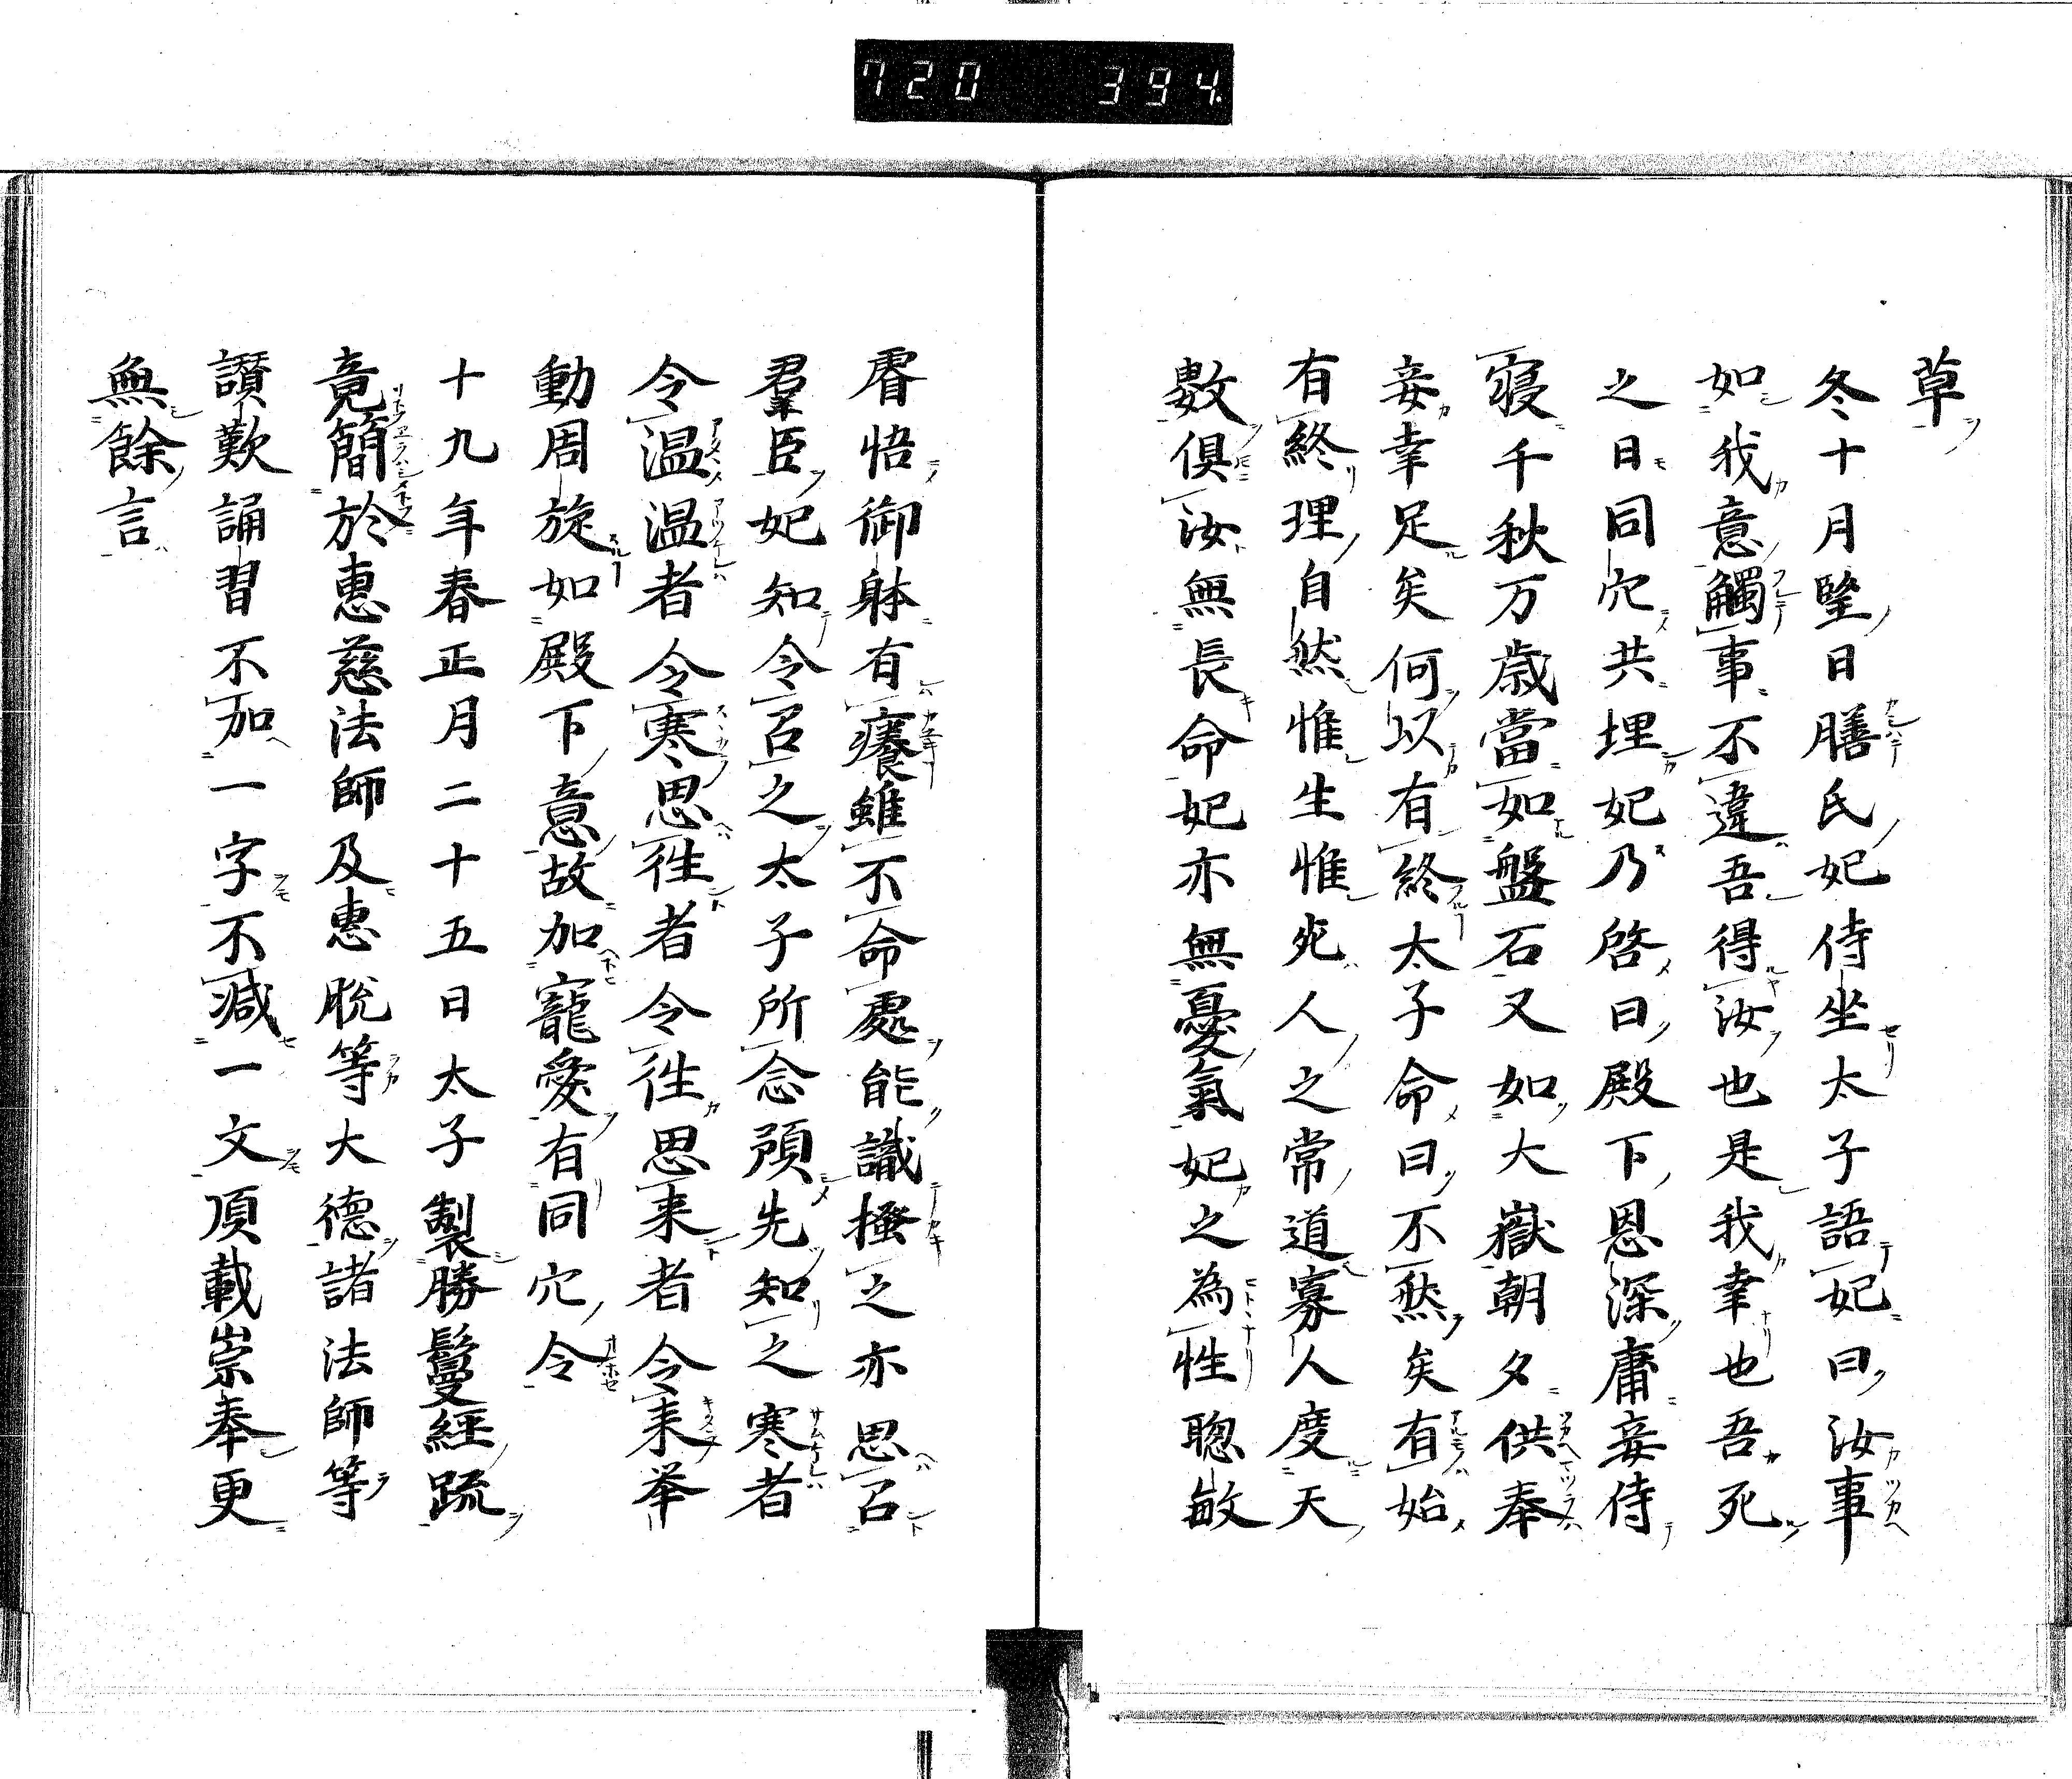 720 394
草
冬十月堅日膳氏妃侍坐太子語妃曰汝事
如我意觸事不違吾得汝也是我幸也吾死
之日同穴共埋妃乃啓曰殿下恩深庸妾侍
寝千秋万歳當如盤石又如大嶽朝夕供奉
妾幸足矣何以有終太子命曰不然矣有始
有終理自然惟生惟死人之常道寡人度天
數俱汝無長命妃亦無憂氣妃之為性聡敏
睿悟御躰有癢雖不命處能識搔之亦思召
羣臣妃知令召之太子所念預先知之寒者
令温温者令寒思徃者令徃思来者令来挙
動周旋如殿下意故加寵愛有同穴令
十九年春正月二十五日太子製勝鬘經疏
竟簡於惠慈法師及惠聡等大德諸法師等
讃歎誦習不加一字不減一文頂載崇奉更
無餘言